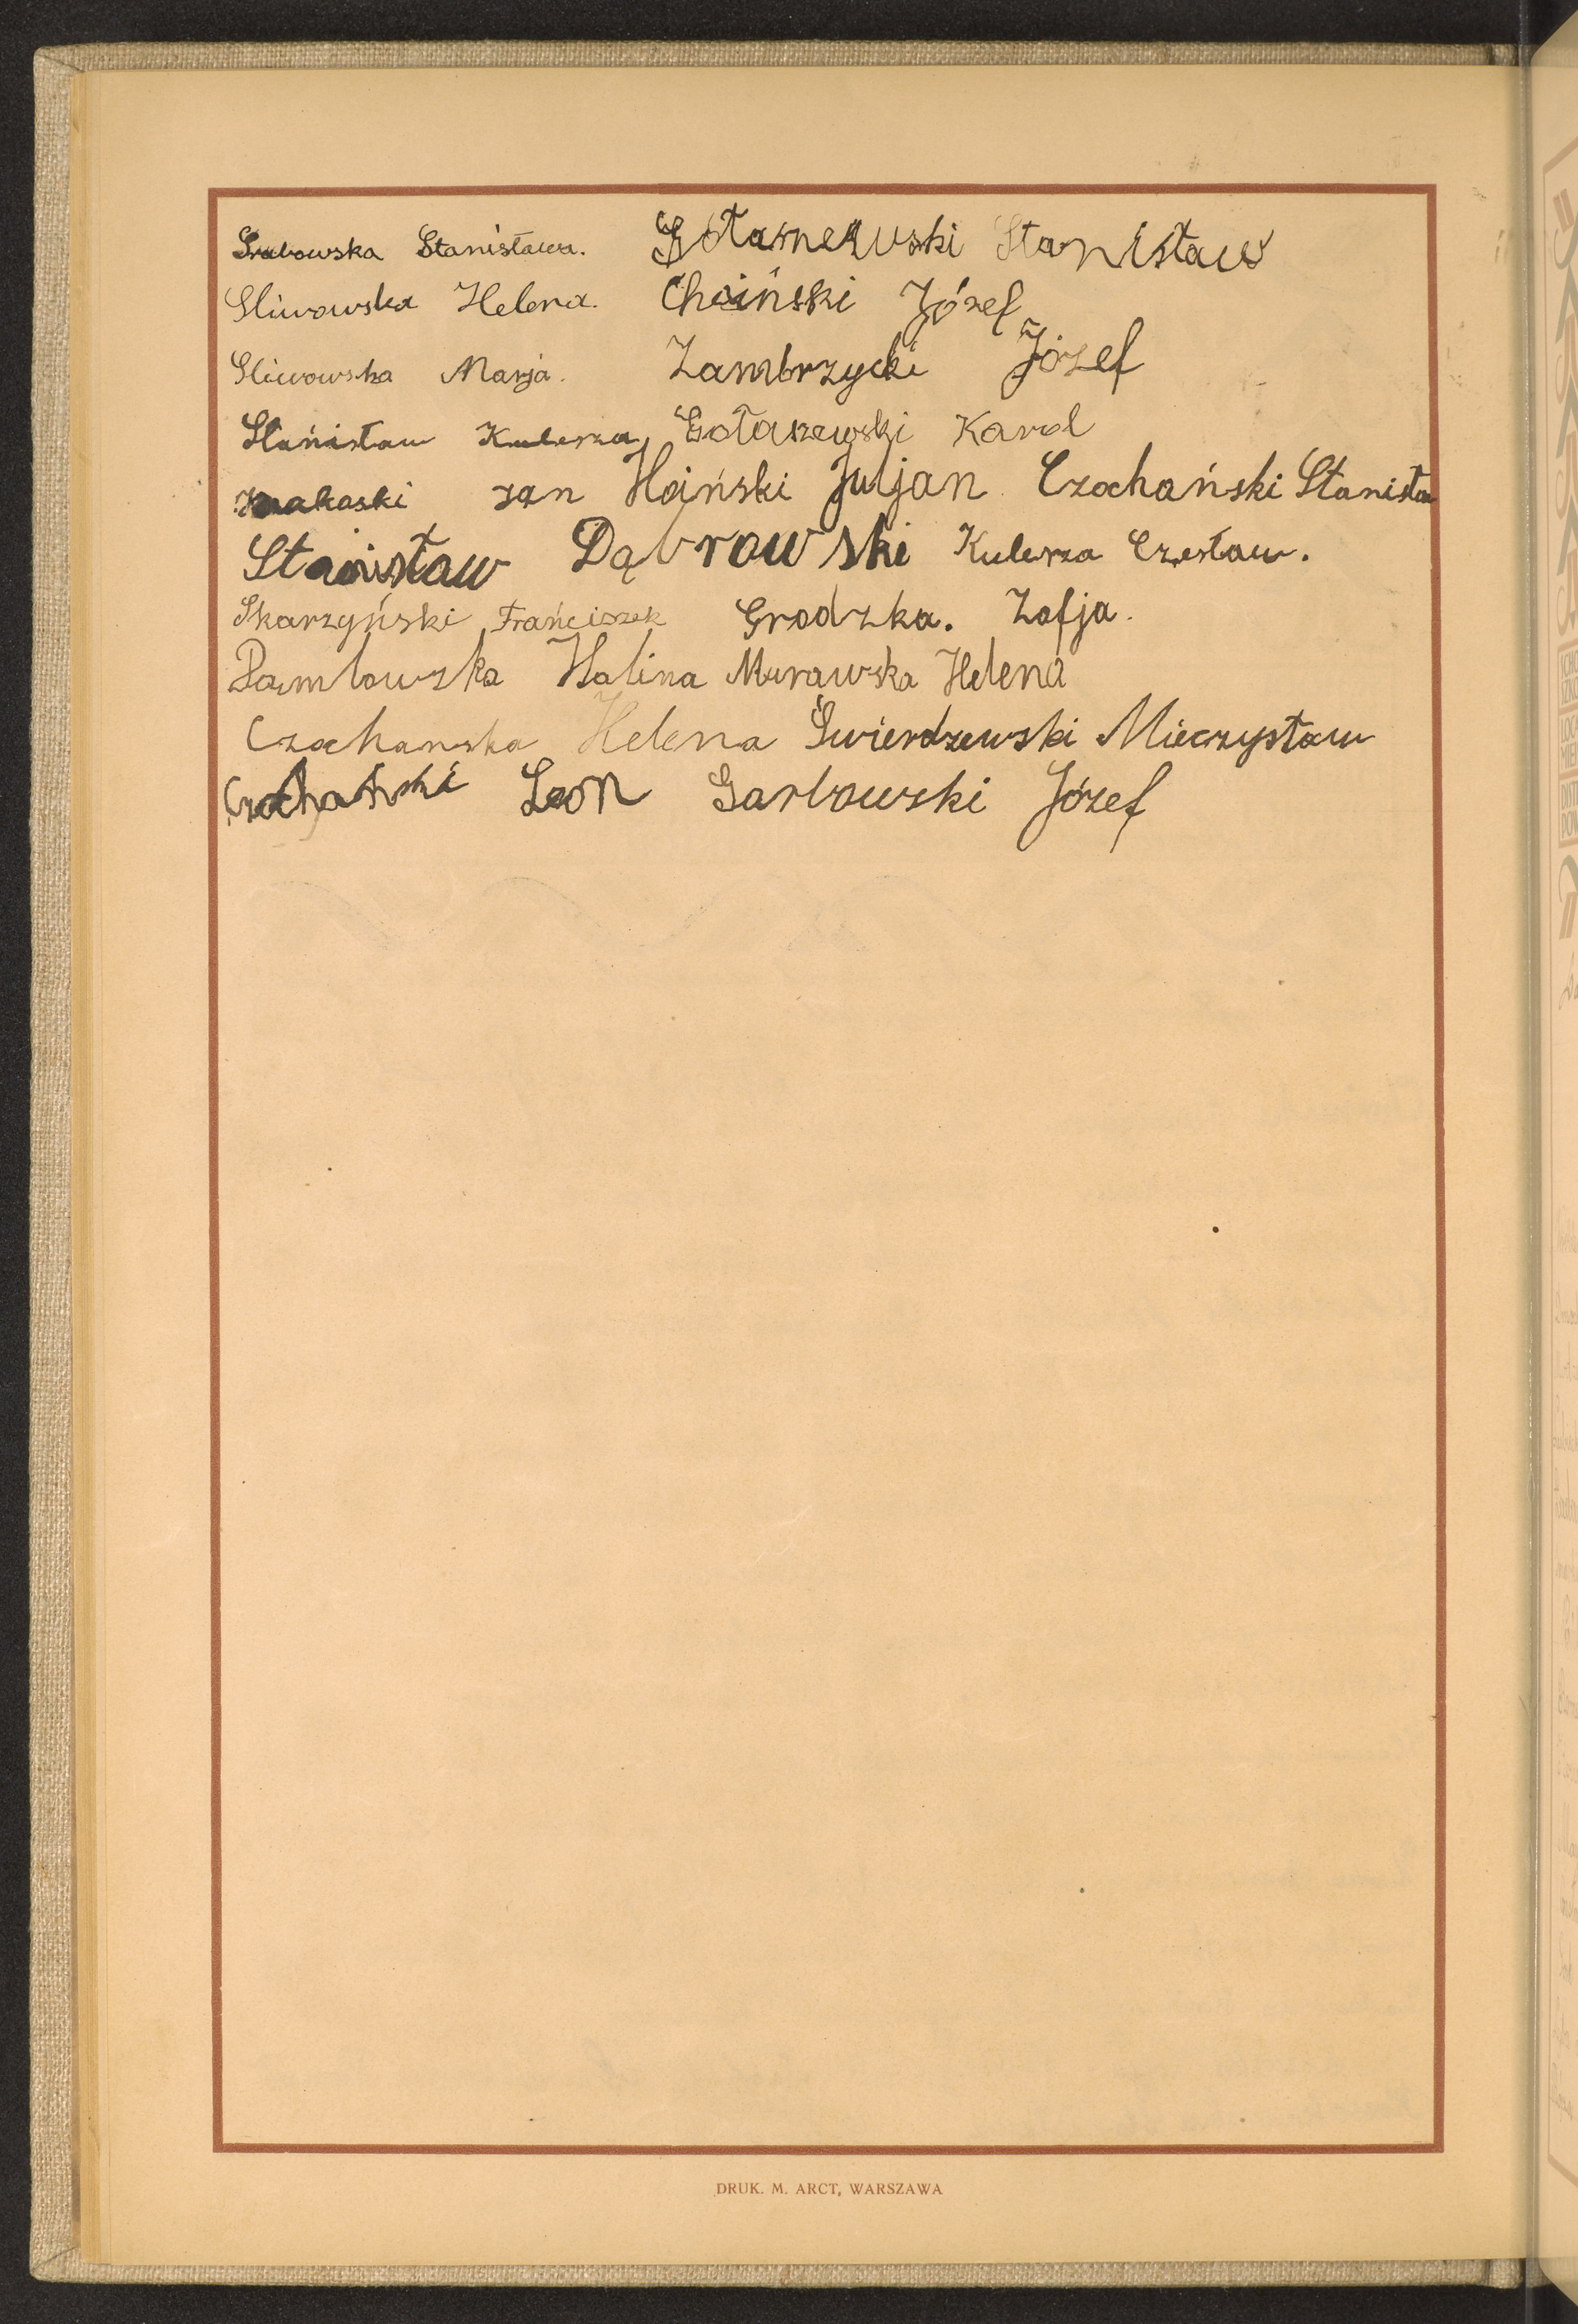 Grabowska Stanisława. Gołaszewski Stanisław
Sliwowska Helena. Choiński Józef
Sliwowska Marja. Zambrzycki Józef
Stanisław Kulesza Gołaszewski Karol
Jan Hoiński Juljan Czochański Stanisła
Stanisław Dąbrowski Kulesza Czesław.
Skarzyński Frańciszek Grodzka. Zofja.
Dąmbowska Halina Murawska Helena
Czochanska Helena Świerdzewski Mieczysław
Czochański Leon Garbowski Józef
DRUK. M. ARCT, WARSZAWA